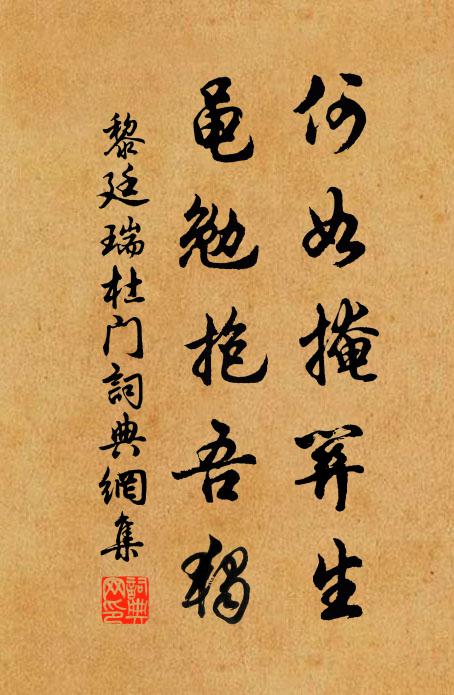 何如掩關生
黽勉抱吾獨
黎廷瑞杜门詞典網集
詞典
网印